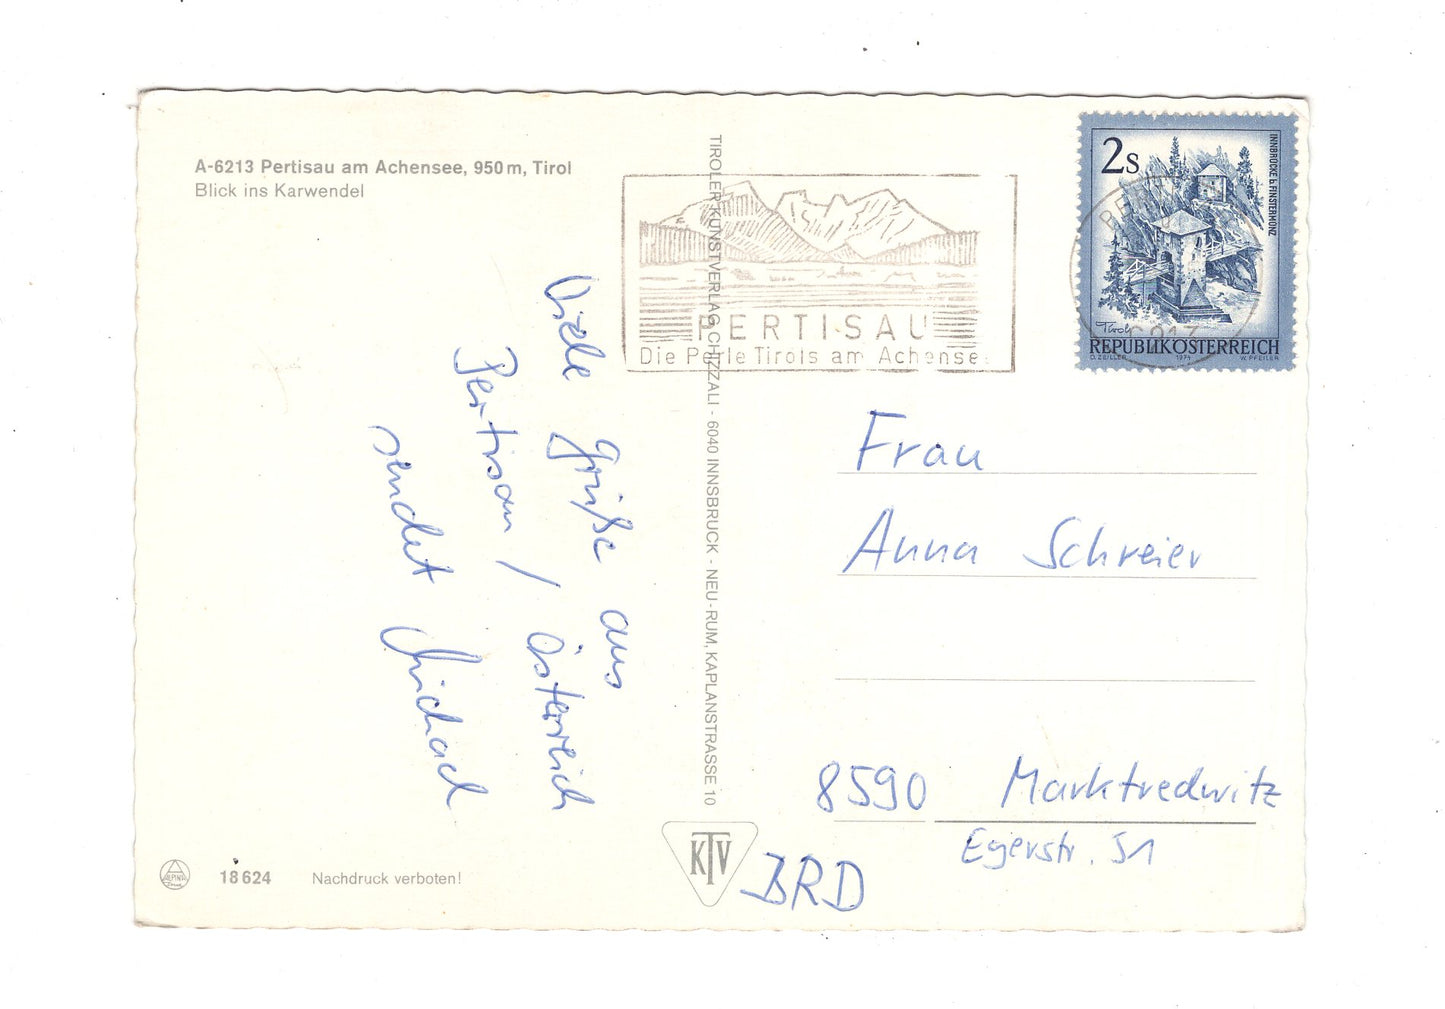 A-6213 Pertisau am Achensee, 950 m, Tirol
Blick ins Karwendel
Viele Grüße aus
Pertisau / Österreich
sendet Michael
TIROLER KUNSTVERLAG CHIZZALI - 6040 INNSBRUCK - NEU-RUM, KAPLANSTRASSE 10
PERTISAU
Die Perle Tirols am Achensee
2s
INNBRÜCKE b. FINSTERMÜNZ
Tirol
REPUBLIK ÖSTERREICH
O. ZEILLER 1974 W. PFEILER
Frau
Anna Schreier
8590 Marktredwitz
Egerstr. 51
BRD
KTV
ALPINA
18 624
Nachdruck verboten!